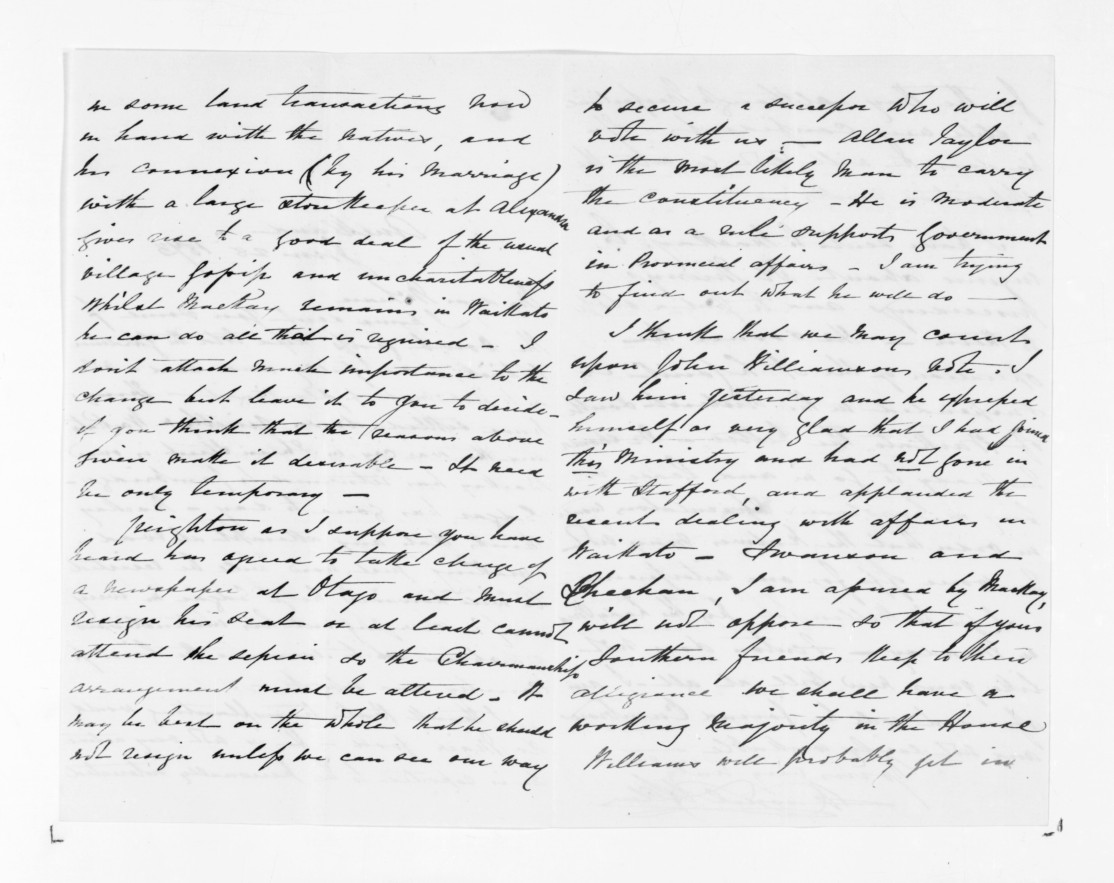 in some land transactions now
in hand with the natives, and
his connexion (by his marriage)
with a large storekeeper at Alexandra
gives rise to a good deal of the usual
village gossip and uncharitableness
Whilst Mackay remains in Waikato
he can do all that is required - I
don't attach much importance to the
change but leave it to you to decide -
if you think that the reasons above
given make it desirable - It need
be only temporary -
Creighton as I suppose you have
heard has agreed to take charge of
a newspaper at Otago and must
resign his seat or at least cannot
attend the session so the Chairmanship
arrangement must be altered - It
may be best on the whole that he should
not resign unless we can see our way
to secure a successor who will
vote with us - Allan Taylor
is the most likely man to carry
the constituency - He is moderate
and as a rule supports Government
in Provincial affairs - I am trying
to find out what he will do -
I think that we may count
upon John Williamsons vote. I
saw him yesterday and he expressed
himself as very glad that I had joined
this Ministry and had not gone in
with Stafford, and applauded the
recent dealing with affairs in
Waikato - Swanson and
Sheehan, I am assured by Mackay,
will not oppose - so that if your
Southern friends keep to their
allegiance we shall have a
working majority in the House
Williams will probably get in